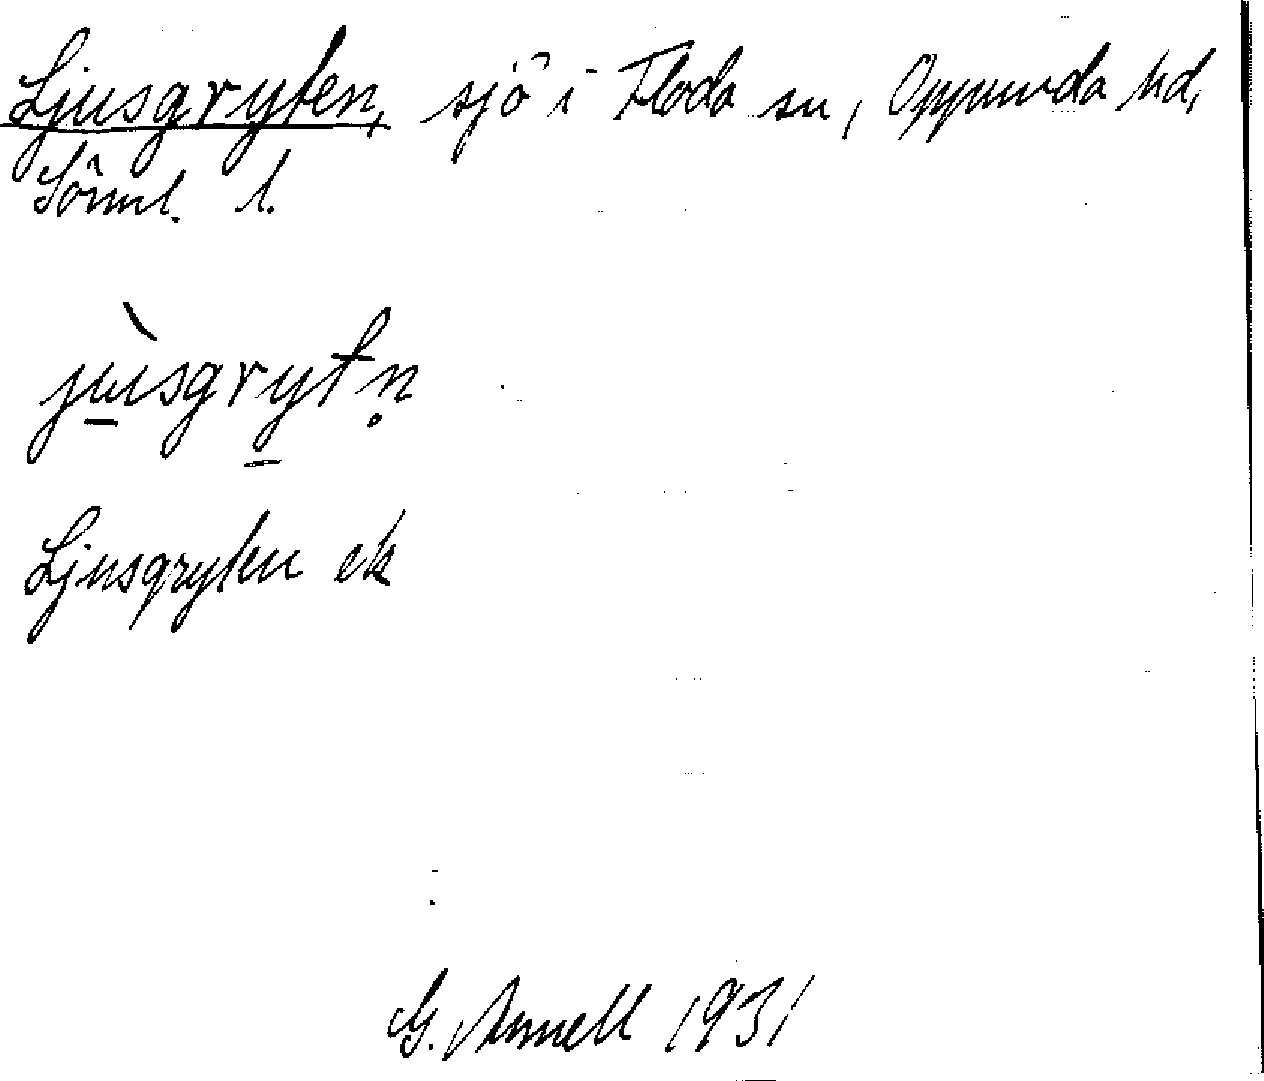 Ljusgryten, sjö i Floda sn, Oppunda hd,
Söml. l.
jùsgrytn̥
Ljusgryten ek
G. Arnell 1931